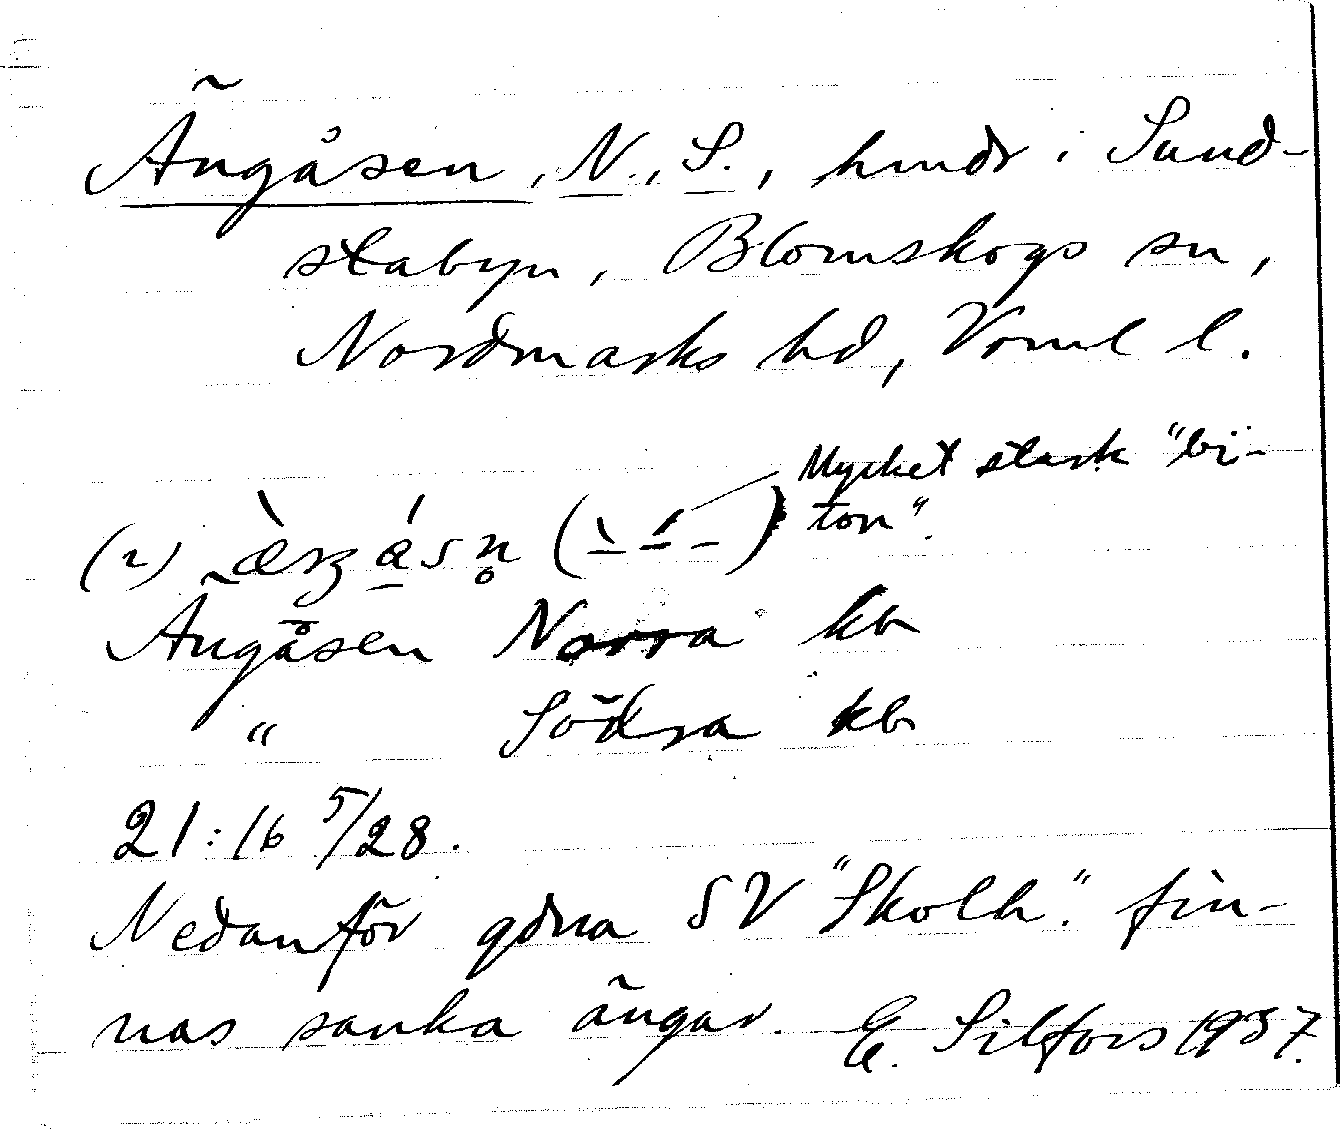 Ängåsen, N., S., hmdr i Sund-
stabyn, Blomskogs sn,
Nordmarks hd, Vrml l.
Mycket stark "bi-
ton".
(2)
Ängåsen Norra kb
" Södra kb
21:16 5/28.
Nedanför gdna SV "Skolh". fin-
nas sanka ängar. E. Silfors 1937.